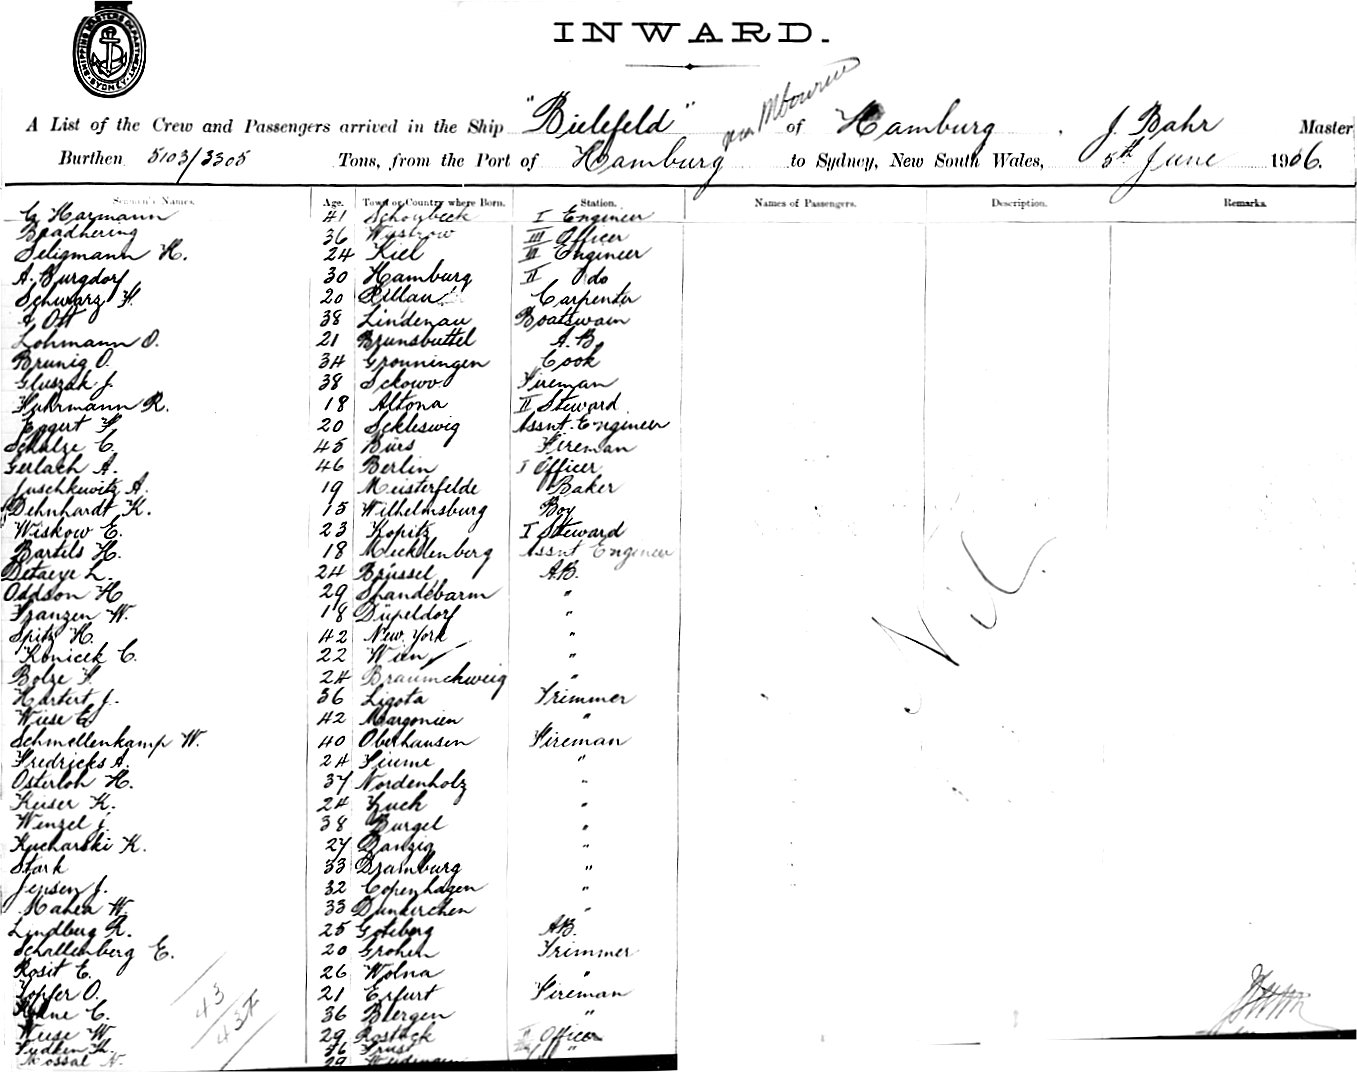 SHIPPING MASTERS DEPARTMENT SYDNEY
INWARD.
via Mbourne
A List of the Crew and Passengers arrived in the Ship "Bielefeld" of Hamburg, J. Bahr Master
Burthen 5103/3305 Tons, from the Port of Hamburg to Sydney, New South Wales, 5th June 1906.
Seaman's Names. Age. Town or Country where Born. Station. Names of Passengers. Description. Remarks.
G Harmann 41 I Engineer
36 Wustrow III Officer
Seligmann H. 24 Kiel III Engineer
A. Burgdorf 30 Hamburg II do
Schwarz F. 20 Pillau Carpenter
Ott 38 Lindenau Boatswain
Lohmann O. 21 Brunsbuttel A.B.
Brunig O. 34 Gronningen Cook
Gluszak J. 38 Fireman
Fuhrmann R. 18 Altona II Steward
Eggert F. 20 Schleswig Assnt. Engineer
Schulze C. 45 Bürs Fireman
Gerlach A. 46 Berlin I Officer
Juschkewitz A. 19 Meisterfelde Baker
Dehnhardt K. 15 Wilhelmsburg Boy
Wiskow E. 23 Kopitz I Steward
Bartels H. 18 Mecklenberg Assnt Engineer
Detaeye L. 24 Brüssel A.B.
Oddson H 29 Shandebarm "
Franzen W. 18 Düpeldorf "
Spitz H. 42 New York "
Konicek C. 22 Wien "
Bolze F. 24 Braumchweig "
Hartert J. 36 Ligota Trimmer
Wiese E 42 Margonien "
Schmellenkamp W. 40 Oberhausen Fireman
Fredricks A. 24 Fiume "
Osterloh H. 37 Nordenholz "
Keiser K. 24 "
Wenzel J. 38 Burgel "
Kucharski K. 27 Danzig "
Stark 33 Dramburg "
Jensen J. 32 Copenhagen "
Mahea W. 33 Dunkirchen "
Lindberg R. 25 Goteberg A.B.
Schallenberg E. 20 Grohen Trimmer
Rosit E. 26 Wolna "
Topfer O. 21 Erfurt Fireman
C. 36 Bergen "
Wiese W. 29 Rostock II Officer
"
Mossal N. 29
Nil
43